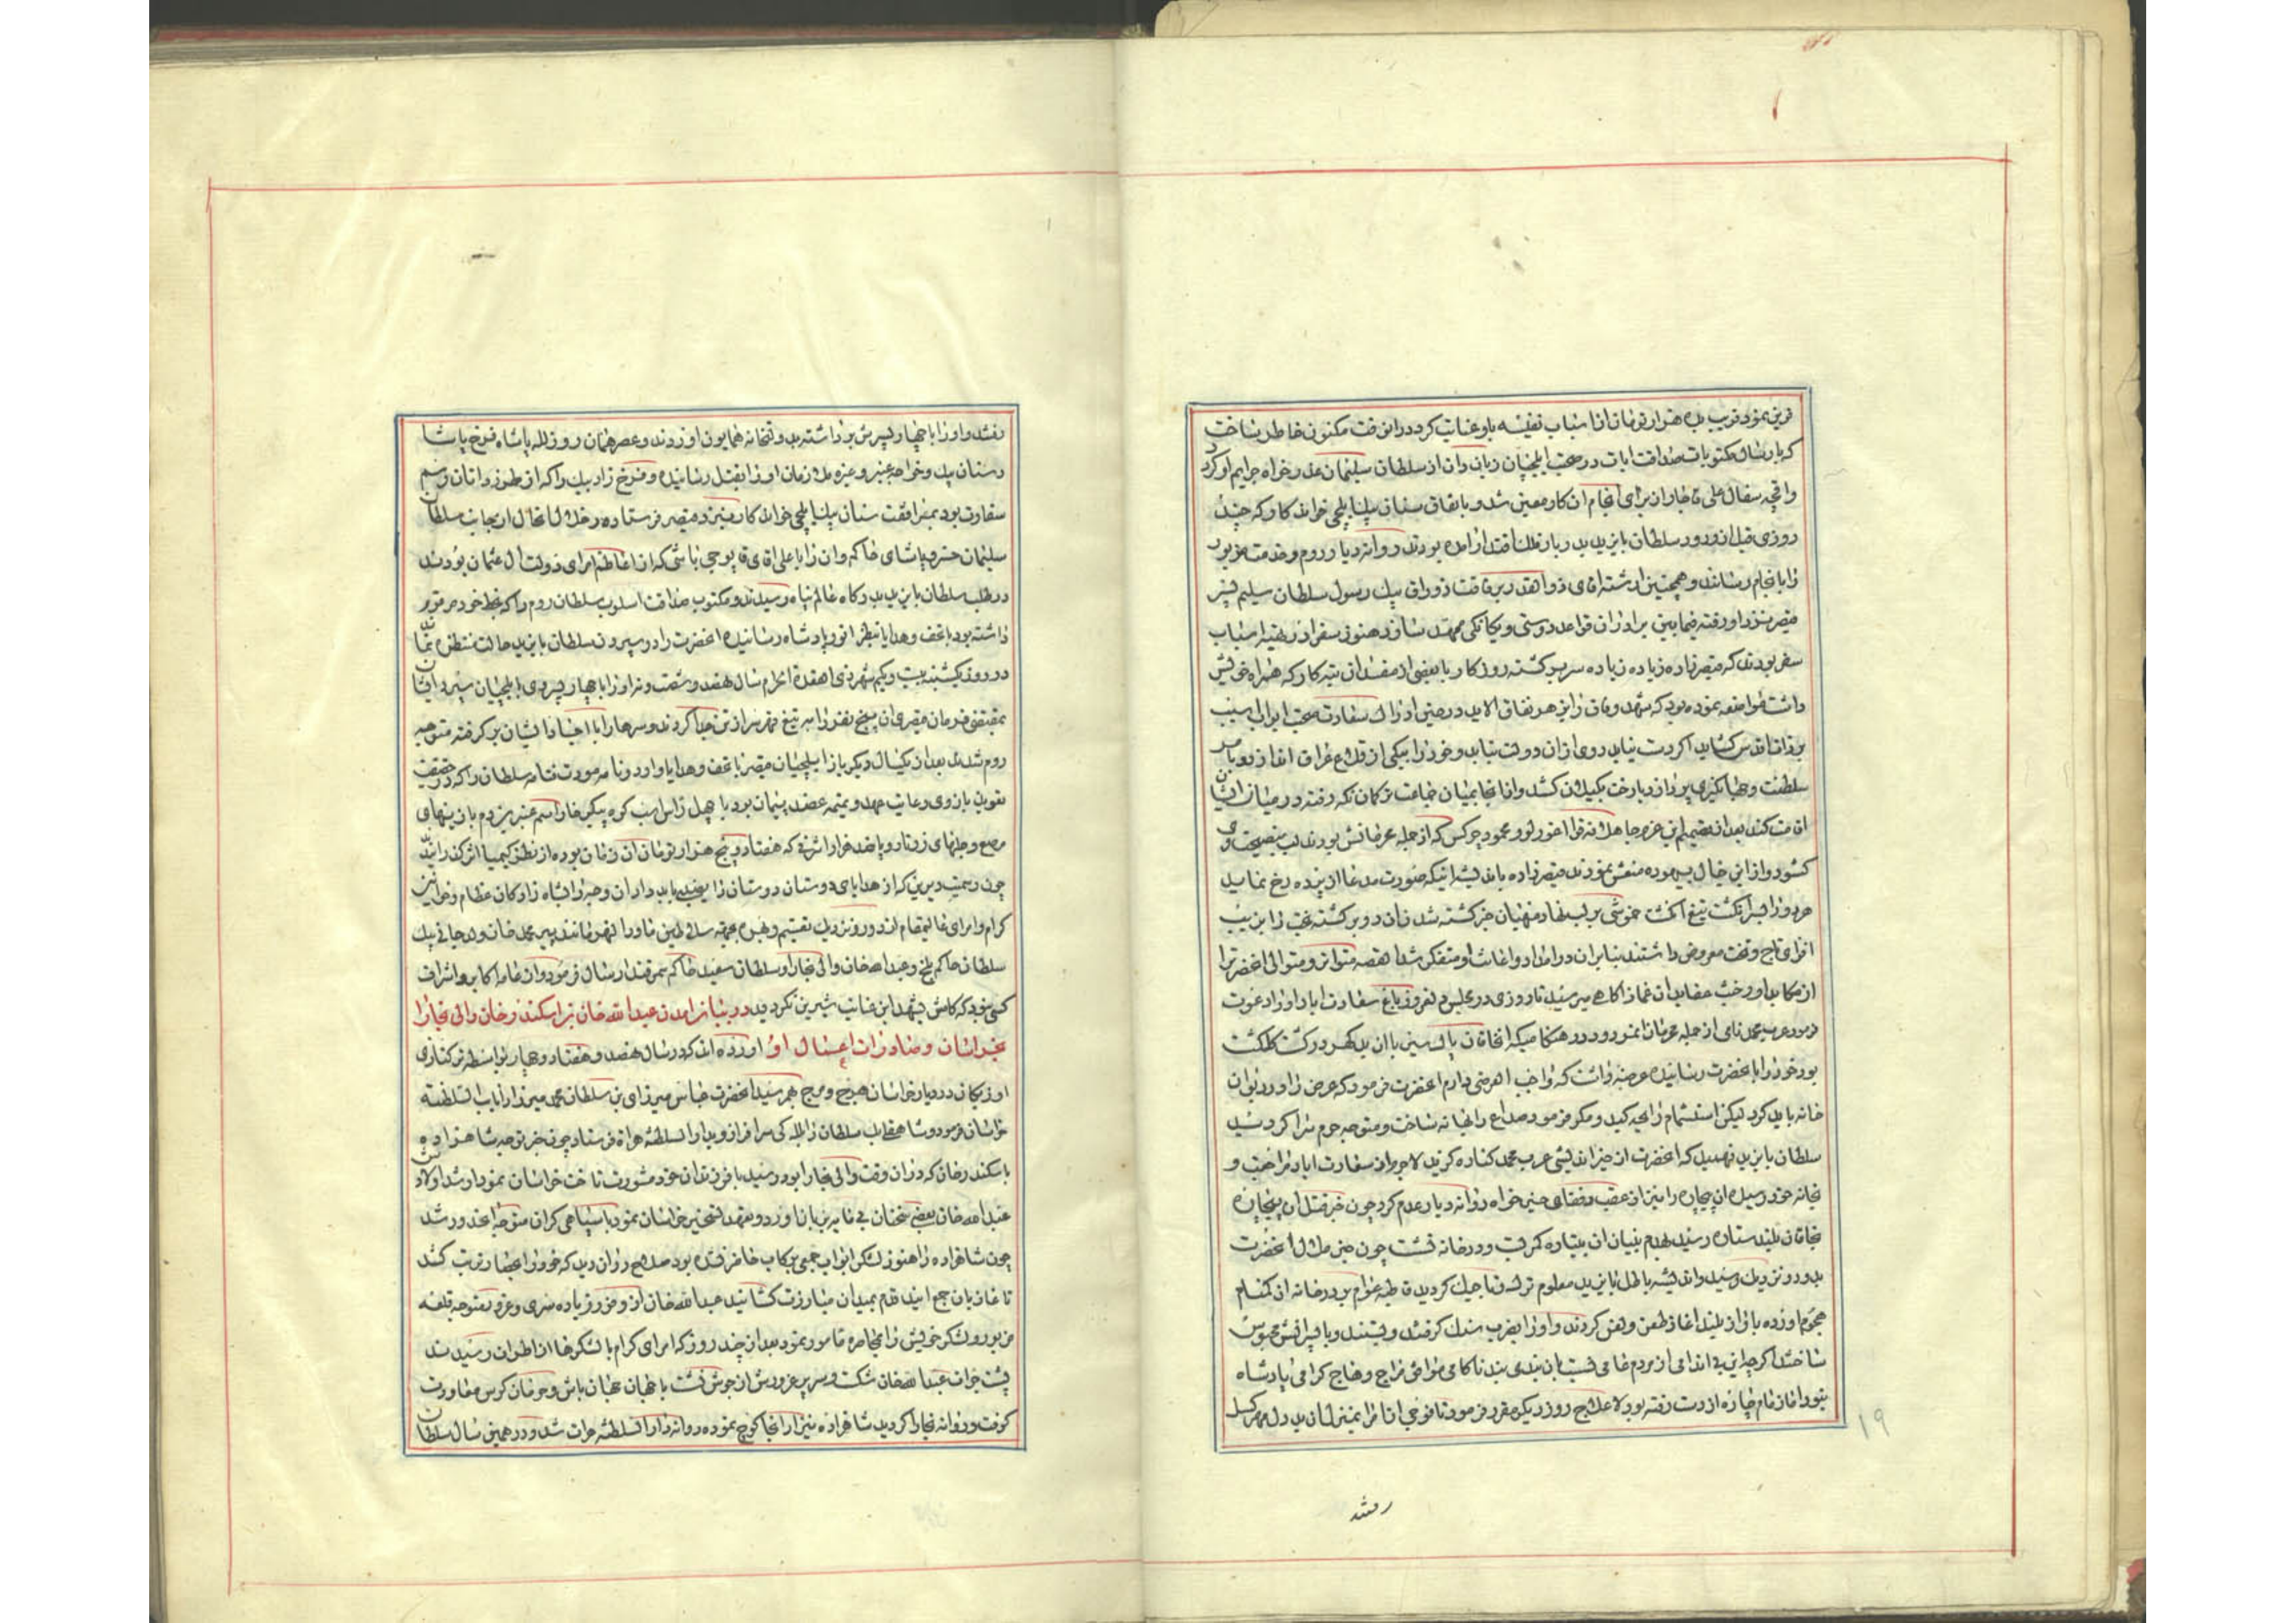 قرین نمود قریب بده هزار تومان از اسباب نفیسه باو عنایت کرد در این وقت مکنون خاطر ساخت
که بارسال مکتوبات صداقت ایات در صحبت ایلچیان زبان دان از سلطان سلیمان عذر خواه جرایم او کردد
واقچه سقال علی قاجار از برای انجام ان کار معین شد و باتفاق سنان بیک ایلچی خواندکار که چند
روزی قبل از ورود سلطان بایزید بدربار فلک اقتدار امده بودند روانه دیار روم و خدمت مزبور
را بانجام رسانند و همچنین اقای ذوالقدر برفاقت دوراق بیک رسول سلطان سلیم پسر
قیصر نزد او رفته فیمابین برادران قواعد دوستی و یکانکی ممهد سازد هنوز سفرا در تهیه اسباب
سفر بودند که قیصر زاده زیاده زیاده سر برکشته روزکار با بعضی از مفسدان تبه کار که همراه خویش
داشت مواضعه نموده بود که شهد وفاق را بزهر نفاق الاید در حین ادراک سعادت صحبت ابرار اسیب
بر ذات اقدس کشاید اکر دست نیابد روی از ان دولت بتابد و خود را بیکی از قلاع عراق اندازد و یا سر
سلطنت و جهانکیری بردارد یا رخت بکیلان کشد و از انجا بمیان جماعت ترکمان تکه رفته در میان ایشان
اقامت کند بعد از تصمیم این عزم جاهلانه قرا اغورلو و محمود چرکس که از جمله محرمانش بودند لب بنصیحت وی
کشود و از این خیال بیهوده منعش نمودند قیصر زاده باندیشه انیکه صورت مدعا از پرده رخ نماید
هر دو را بسر انکشت تیغ انکشت خموشی بر لب نهاد منهیان خبر کشته شدن ان دو برکشته بخت را بزیب
افزای تاج و تخت معروض داشتند بنابران در امداد و اعانت او متفکر شد القصه متواتر و متوالی اعلحضرت را
از مکاید او و خبث عقاید ان غماز اکاهی میرسید تا روزی در مجلس دلفروز باغ سعادت اباد او را دعوت
فرمود عرب محمد نامی از جمله محرمان انمرد و در هنکامیکه انخاقان پاک سیر با ان بدکهر در کشت کلکشت
بود خود را باعلحضرت رسانیده عرضه داشت که واجب العرضی دارم اعلحضرت فرمود که عرض را در دیوان
خانه باید کرد لیکن استشمام رایحه کید و مکر فرمود صداع را بهانه ساخت و متوجه حرم سرا کردید
سلطان بایزید فهمید که اعلحضرت از خیر اندیشی عرب محمد کناره کزید لاجرم از سعادت اباد مراجعت و
بخانه خود رسید ان بیچاره را نیز از عقب رفقای خیر خواه روانه دیار عدم کرد چون خبر قتل ان بیچاره
بخاقان بلند ستاره رسید بهدم بنیان ان بیتاره کمر بست و در خانه نشست چون حین ملال اعلحضرت
بدور و نزدیک رسید و اندیشه باطل بایزید معلوم ترک و تاجیک کردید قاطبه عوام بر در خانه ان کمنام
هجوم اورده باواز بلند اغاز طعن و لعن کردند و او را بضرب سنک کرفتند و بستند و با پسرانش محبوس
ساختند اکرچه این بی اندامی از مردم عامی نسبت بان بندی بند ناکامی موافق مزاج وهاج کرامی پادشاه
نبود اما زمام چاره از دست رفته بود لاعلاج روز دیکر مقرر فرمود تا فوجی از امرا بمنزل ان بد دل بدمهر کسل
رفتند
رفتند و او را با چهار پسرش برداشته بدولتخانه همایون اوردند و عصر همان روز لله پاشا و فرخ پاشا
و سنان بیک و خواجه عنبر و عزه ملازمان او را بقتل رسانیده و فرخ زاد بیک را که از طرز دانان رسم
سفارت بود بمرافقت سنان بیک ایلچی خواندکار بنزد قیصر فرستاده و خلال انحال از جانب سلطان
سلیمان خسرو پاشای حاکم وان را با علی اقای قاپوچی باشی که از اعاظم امرای دولت ال عثمان بودند
در طلب سلطان بایزید بدرکاه عالم پناه رسیدند و مکتوب صداقت اسلوب سلطان روم را که بخط خود مرقوم
داشته بود با تحف و هدایا بنظر انور پادشاه رسانیده اعلحضرت را در سپردن سلطان بایزید حالت منتظره نماند
در روز یکشنبه بیست و یکم شهر ذی القعدة الحرام سال نهصد و شصت و نه او را با چهار پسر وی بایلچیان سپرد ایشان
بمقتضی فرمان قیصری ان پنج نفر را به تیغ قهر سر از تن جدا کردند و سرها را با اجساد ایشان برکرفته متوجه
روم شدند بعد از یکسال دیکر باز ایلچیان قیصر با تحف و هدایا وارد و نامه مودت ختامه سلطان را که در حقیقت
تعویذ بازوی رعایت عهد و تمیمه عضد پیمان بود با چهل راس اسب کوه پیکر خارا سم عنبرین دم با زینهای
مرصع و جلهای زرتار و پانصد هزار اشرفی که هفتاد و پنج هزار تومان ان زمان بوده از نظر کیمیا اثر کذرانید
چون رسمیست دیرین که از هدایای دوستان دوستان را نصیبی باید داد ان وجه را شاه از ارکان عظام و خواتین
کرام و امرای عالیمقام از دور و نزدیک تقسیم و بهره بجهته سلاطین ماوراء النهر مانند پیر محمد خان ولد جانی بیک
سلطان حاکم بلخ و عبدالله خان والی بخارا و سلطان سعید حاکم سمرقند ارسال فرمود و از عامه اکابر و اشراف
کسی نبود که کامش بشهد این عنایت شیرین نکردید در بیان امدن عبدالله خان بن اسکندر خان والی بخارا
بخراسان و صادرات اعمال او اورده اند که در سال نهصد و هفتاد و چهار بواسطه ترکتازی
اوزبکان در دیار خراسان هرج و مرج بهم رسید اعلحضرت عباس میرزای بن سلطان محمد میرزا را بایالت السلطنه
خراسان فرمود و شاهقلی سلطان را بللکی سرافراز و بدار السلطنه هراة فرستاد چون خبر توجه شاهزاده
باسکندر خان که در ان وقت والی بخارا بود رسید با فرزندان خود مشورت تاخت خراسان نمود ارشد اولادش
عبدالله خان بعضی سخنان بی مایه بر زبان اورد و تعهد تسخیر خراسان نمود با سپاهی کران متوجه انحدود شد
چون شاهزاده را هنوز لشکر ابواب جمعی برکاب حاضر نشده بود صلاح در ان دید که خود را بحصار تربت کشد
تا غازیان جمع ایند قدم بمیدان مبارزت کشانید عبدالله خان از وفور زیاده سری و غرور متوجه قلعه
مزبور و لشکر خویش را بمحاصره مامور نمود بعد از چند روز که امرای کرام با لشکرها از اطراف رسیدند
پشت جرات عبدالله خان شکست و سر پر غرورش از جوش نشست با جهان جهان یاس و حرمان کوس معاودت
کوفت و روانه بخارا کردید شاهزاده نیز از انجا کوچ نموده روانه دار السلطنه هرات شد و در همین سال سلطان
۱۹